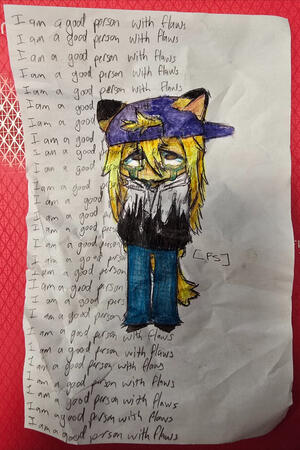 I am a good person with flaws
I am a good person with flaws
I am a good person with flaws
I am a good person with flaws
I am a good person with flaws
I am a good
I am a good
I am a good
I am a good
I am a good
I am a good
I am a good
I am a good
I am a good
I am a good
[PS]
I am a good
I am a good
I am a good pers
I am a good person
I am a good person with flaws
I am a good person with flaws
I am a good person with flaws
I am a good person with flaws
I am a good person with flaws
I am a good person with flaws
I am a good person with flaws